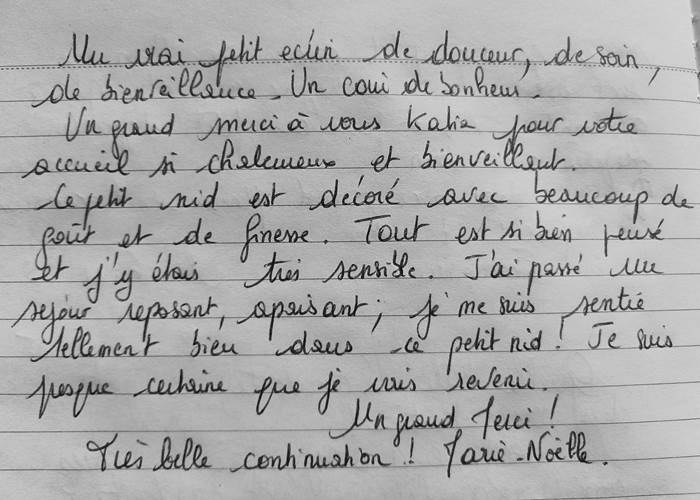 Un vrai petit ecrin de douceur, de soin,
de bienveillance. Un coin de bonheur.
Un grand merci à vous Katia pour votre
accueil si chaleureux et bienveillant.
Ce petit nid est décoré avec beaucoup de
goût et de finesse. Tout est si bien pensé
et j'y étais très sensible. J'ai passé un
sejour reposant, apaisant ; je me suis sentie
tellement bien dans ce petit nid ! Je suis
presque certaine que je vais revenir.
Un grand Merci !
Très belle continuation ! Marie-Noëlle.